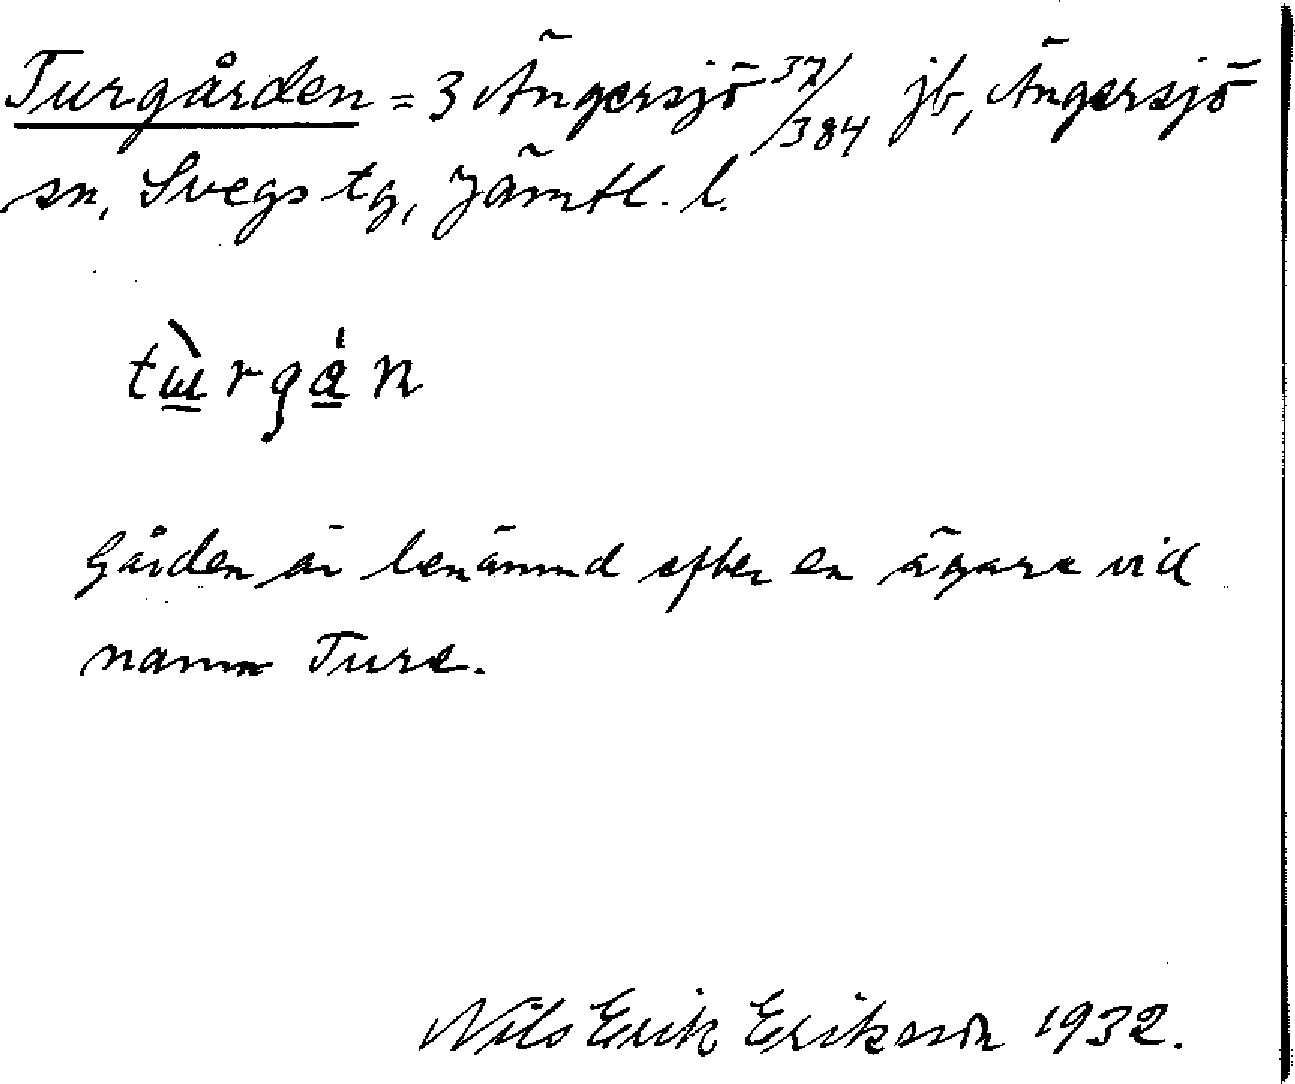 Turgården = 3 Ängersjö 37/384 jb, Ängersjö
sn, Svegs tg, Jämtl. l.
tɯ̀rgån
Gården är benämnd efter en ägare vid
namn Ture.
Nils Erik Eriksson 1932.